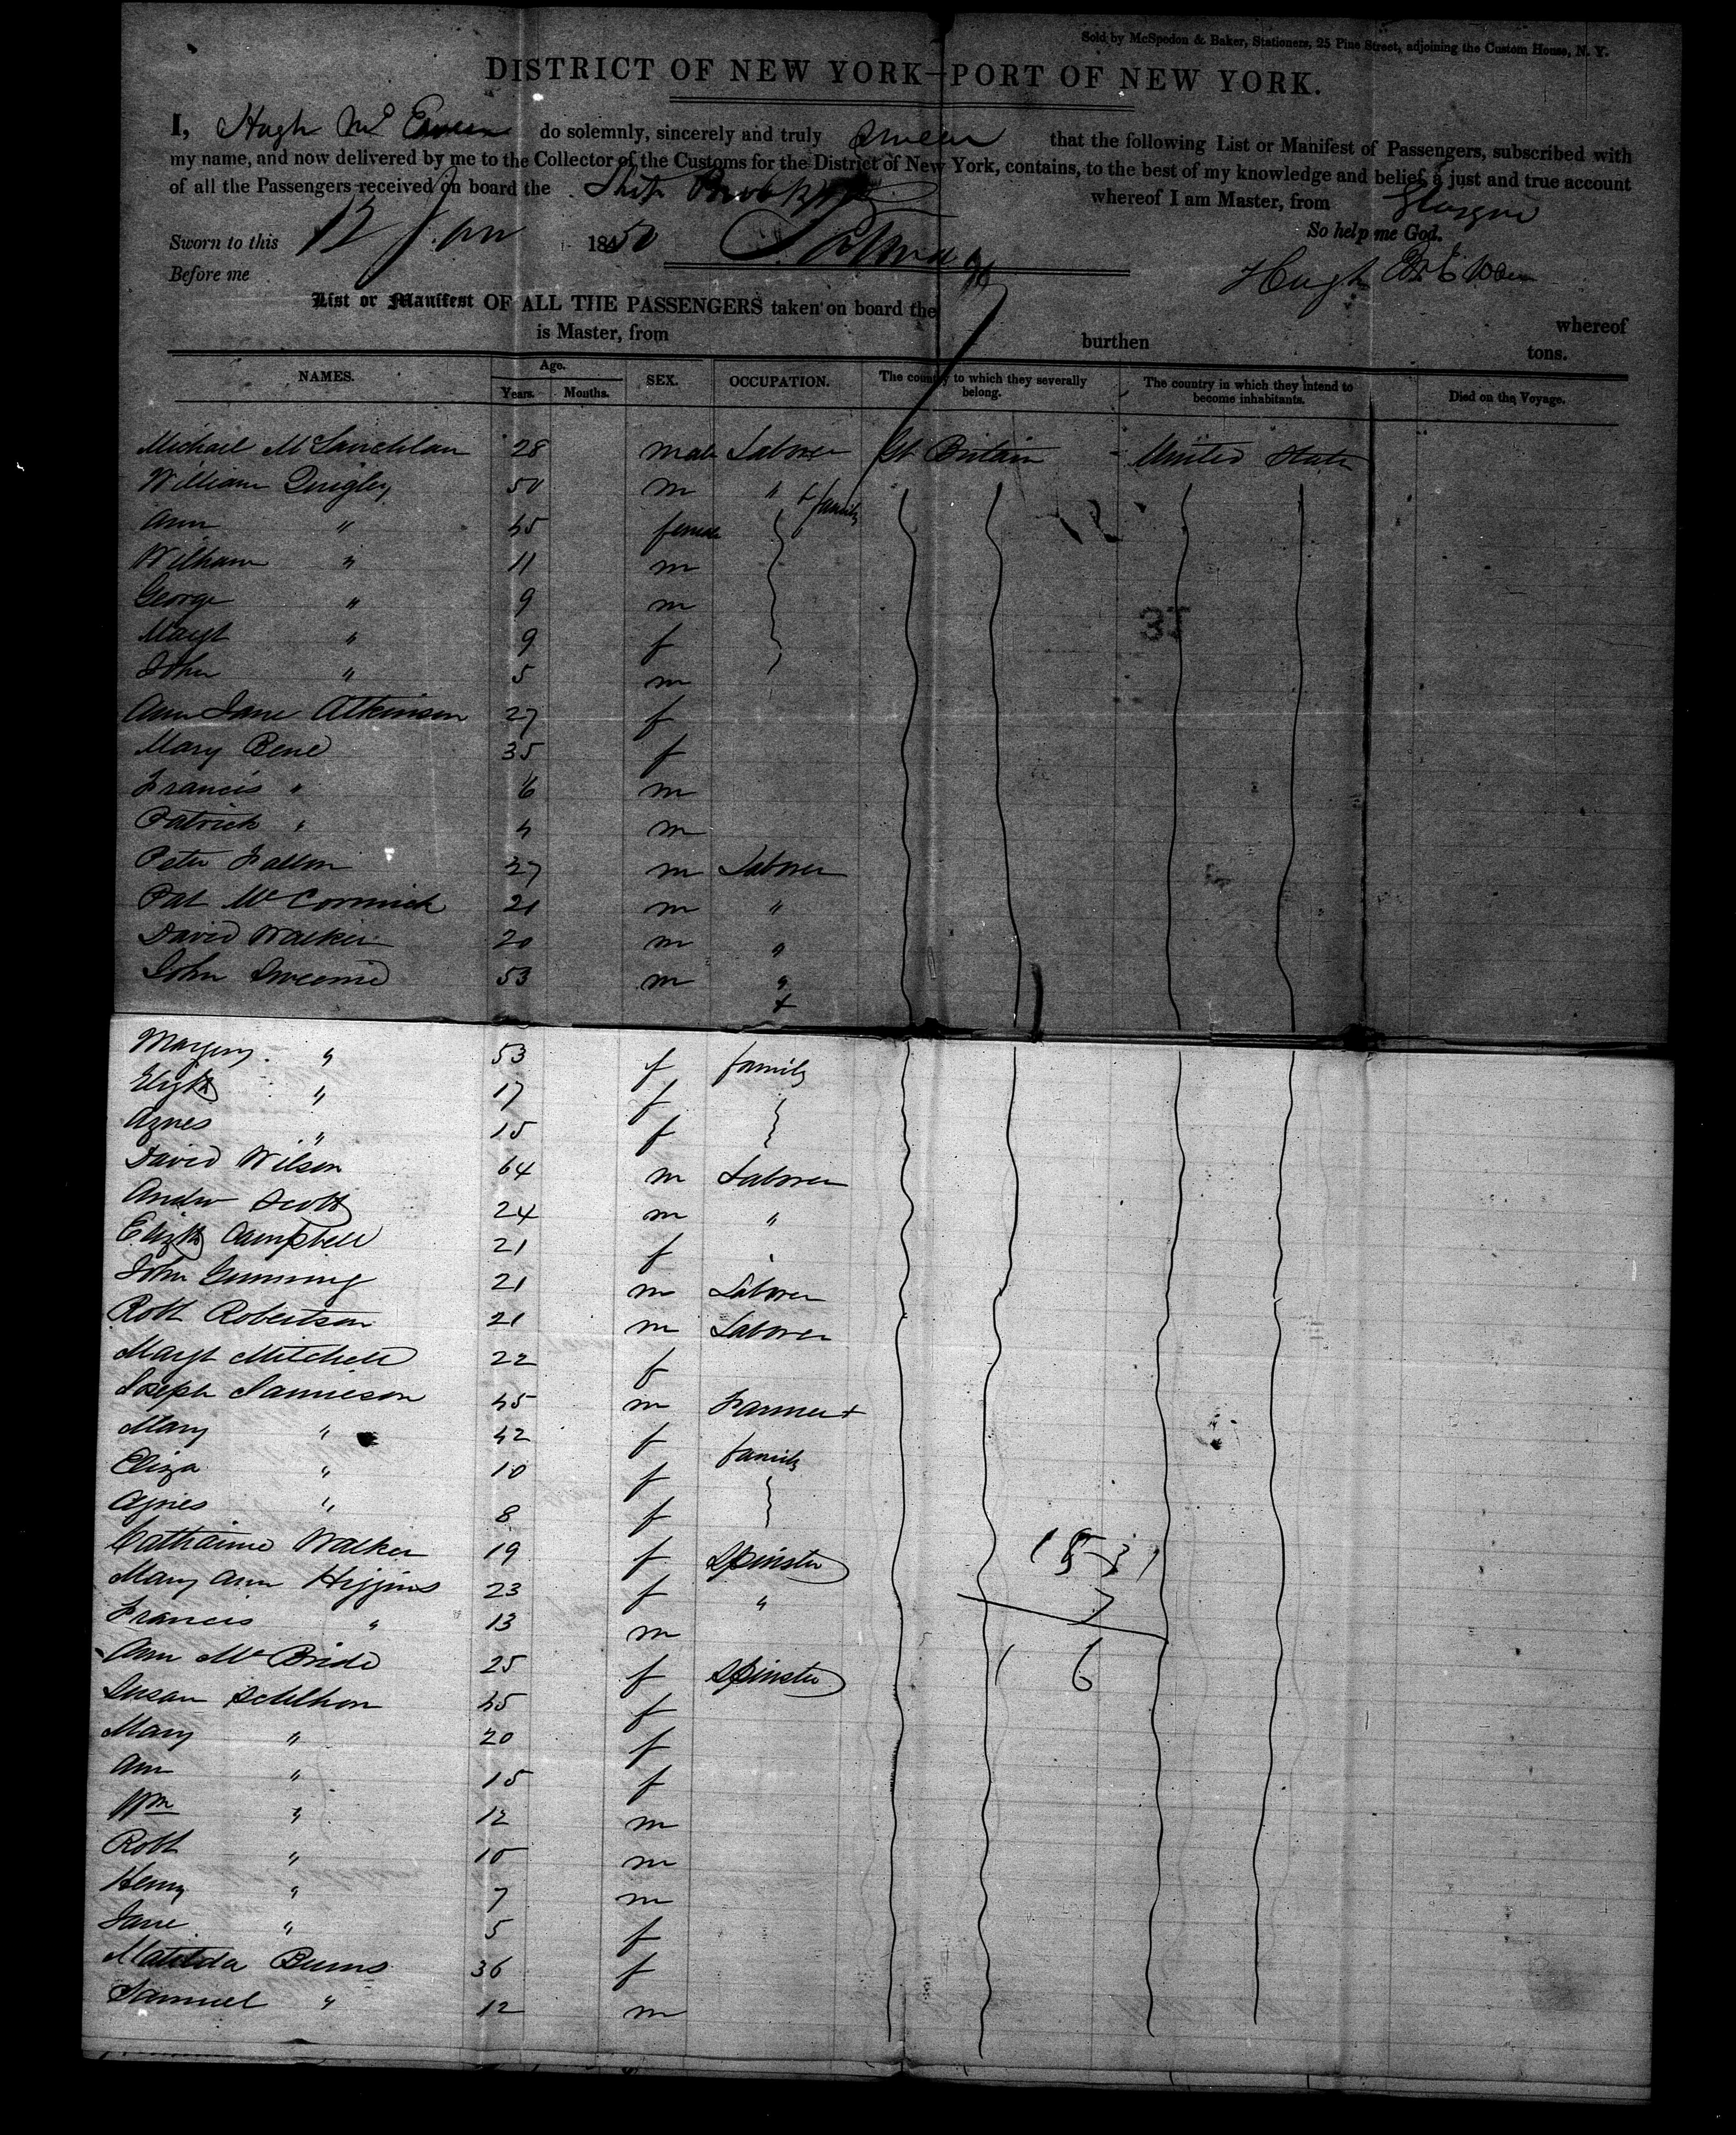 Sold by McSpedon & Baker, Stationers, 25 Pine Street, adjoining the Custom House, N. Y.
DISTRICT OF NEW YORK—PORT OF NEW YORK.
I, Hugh Mc Ewen do solemnly, sincerely and truly swear that the following List or Manifest of Passengers, subscribed with
my name, and now delivered by me to the Collector of the Customs for the District of New York, contains, to the best of my knowledge and belief, a just and true account
of all the Passengers received on board the Ship whereof I am Master, from Glasgow
So help me God.
Sworn to this 12 Jan 1850
Before me Hugh McEwen
List or Manifest OF ALL THE PASSENGERS taken on board the
whereof
is Master, from burthen tons.
NAMES. Age. Years. Months. SEX. OCCUPATION. The country to which they severally belong. The country in which they intend to become inhabitants. Died on the Voyage.
Michael McLauchlan 28 male Laborer Gt Britain United States
William Quigley 50 m " + family
Ann " 45 female
William " 11 m
George " 9 m
Margt " 9 f
John " 5 m
Ann Jane Atkinson 27 f
Mary 35 f
Francis " 6 m
Patrick " 4 m
Peter Fallon 37 m Laborer
Pat McCormick 21 m "
David Walker 20 m "
John 53 m " +
Margery " 53 f family
Elizth " 17 f
Agnes " 15 f
David Wilson 64 m Laborer
Andw Scott 24 m "
Elizth Campbell 21 f
John Gunning 21 m Laborer
Robt Robertson 21 m Laborer
Margt Mitchell 22 f
Joseph Jamieson 45 m Farmer +
Mary " 42 f family
Eliza " 10 f
Agnes " 8 f
Catharine Walker 19 f Spinster
Mary Ann Higgins 23 f "
Francis " 13 m
Ann McBride 25 f Spinster
Susan 45 f
Mary " 20 f
Ann " 15 f
Wm " 12 m
Robt " 10 m
Henry " 7 m
Jane " 5 f
Matilda Burns 36 f
Samuel " 12 m